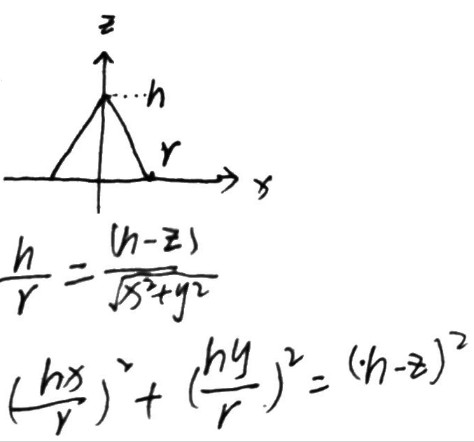 z
h
r
x
h/r = (h-z)/√x²+y²
(hx/r)² + (hy/r)² = (h-z)²